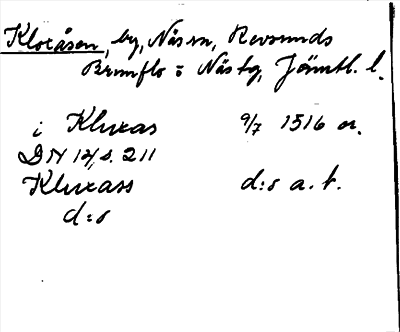 Kloxåsen, by, Näs sn, Revsunds
Brunflo o Näs tg, Jämtl. l.
i Kluxas 9/7 1516 or.
DN 14, s. 211
Kluxass d:o a. t.
d:o